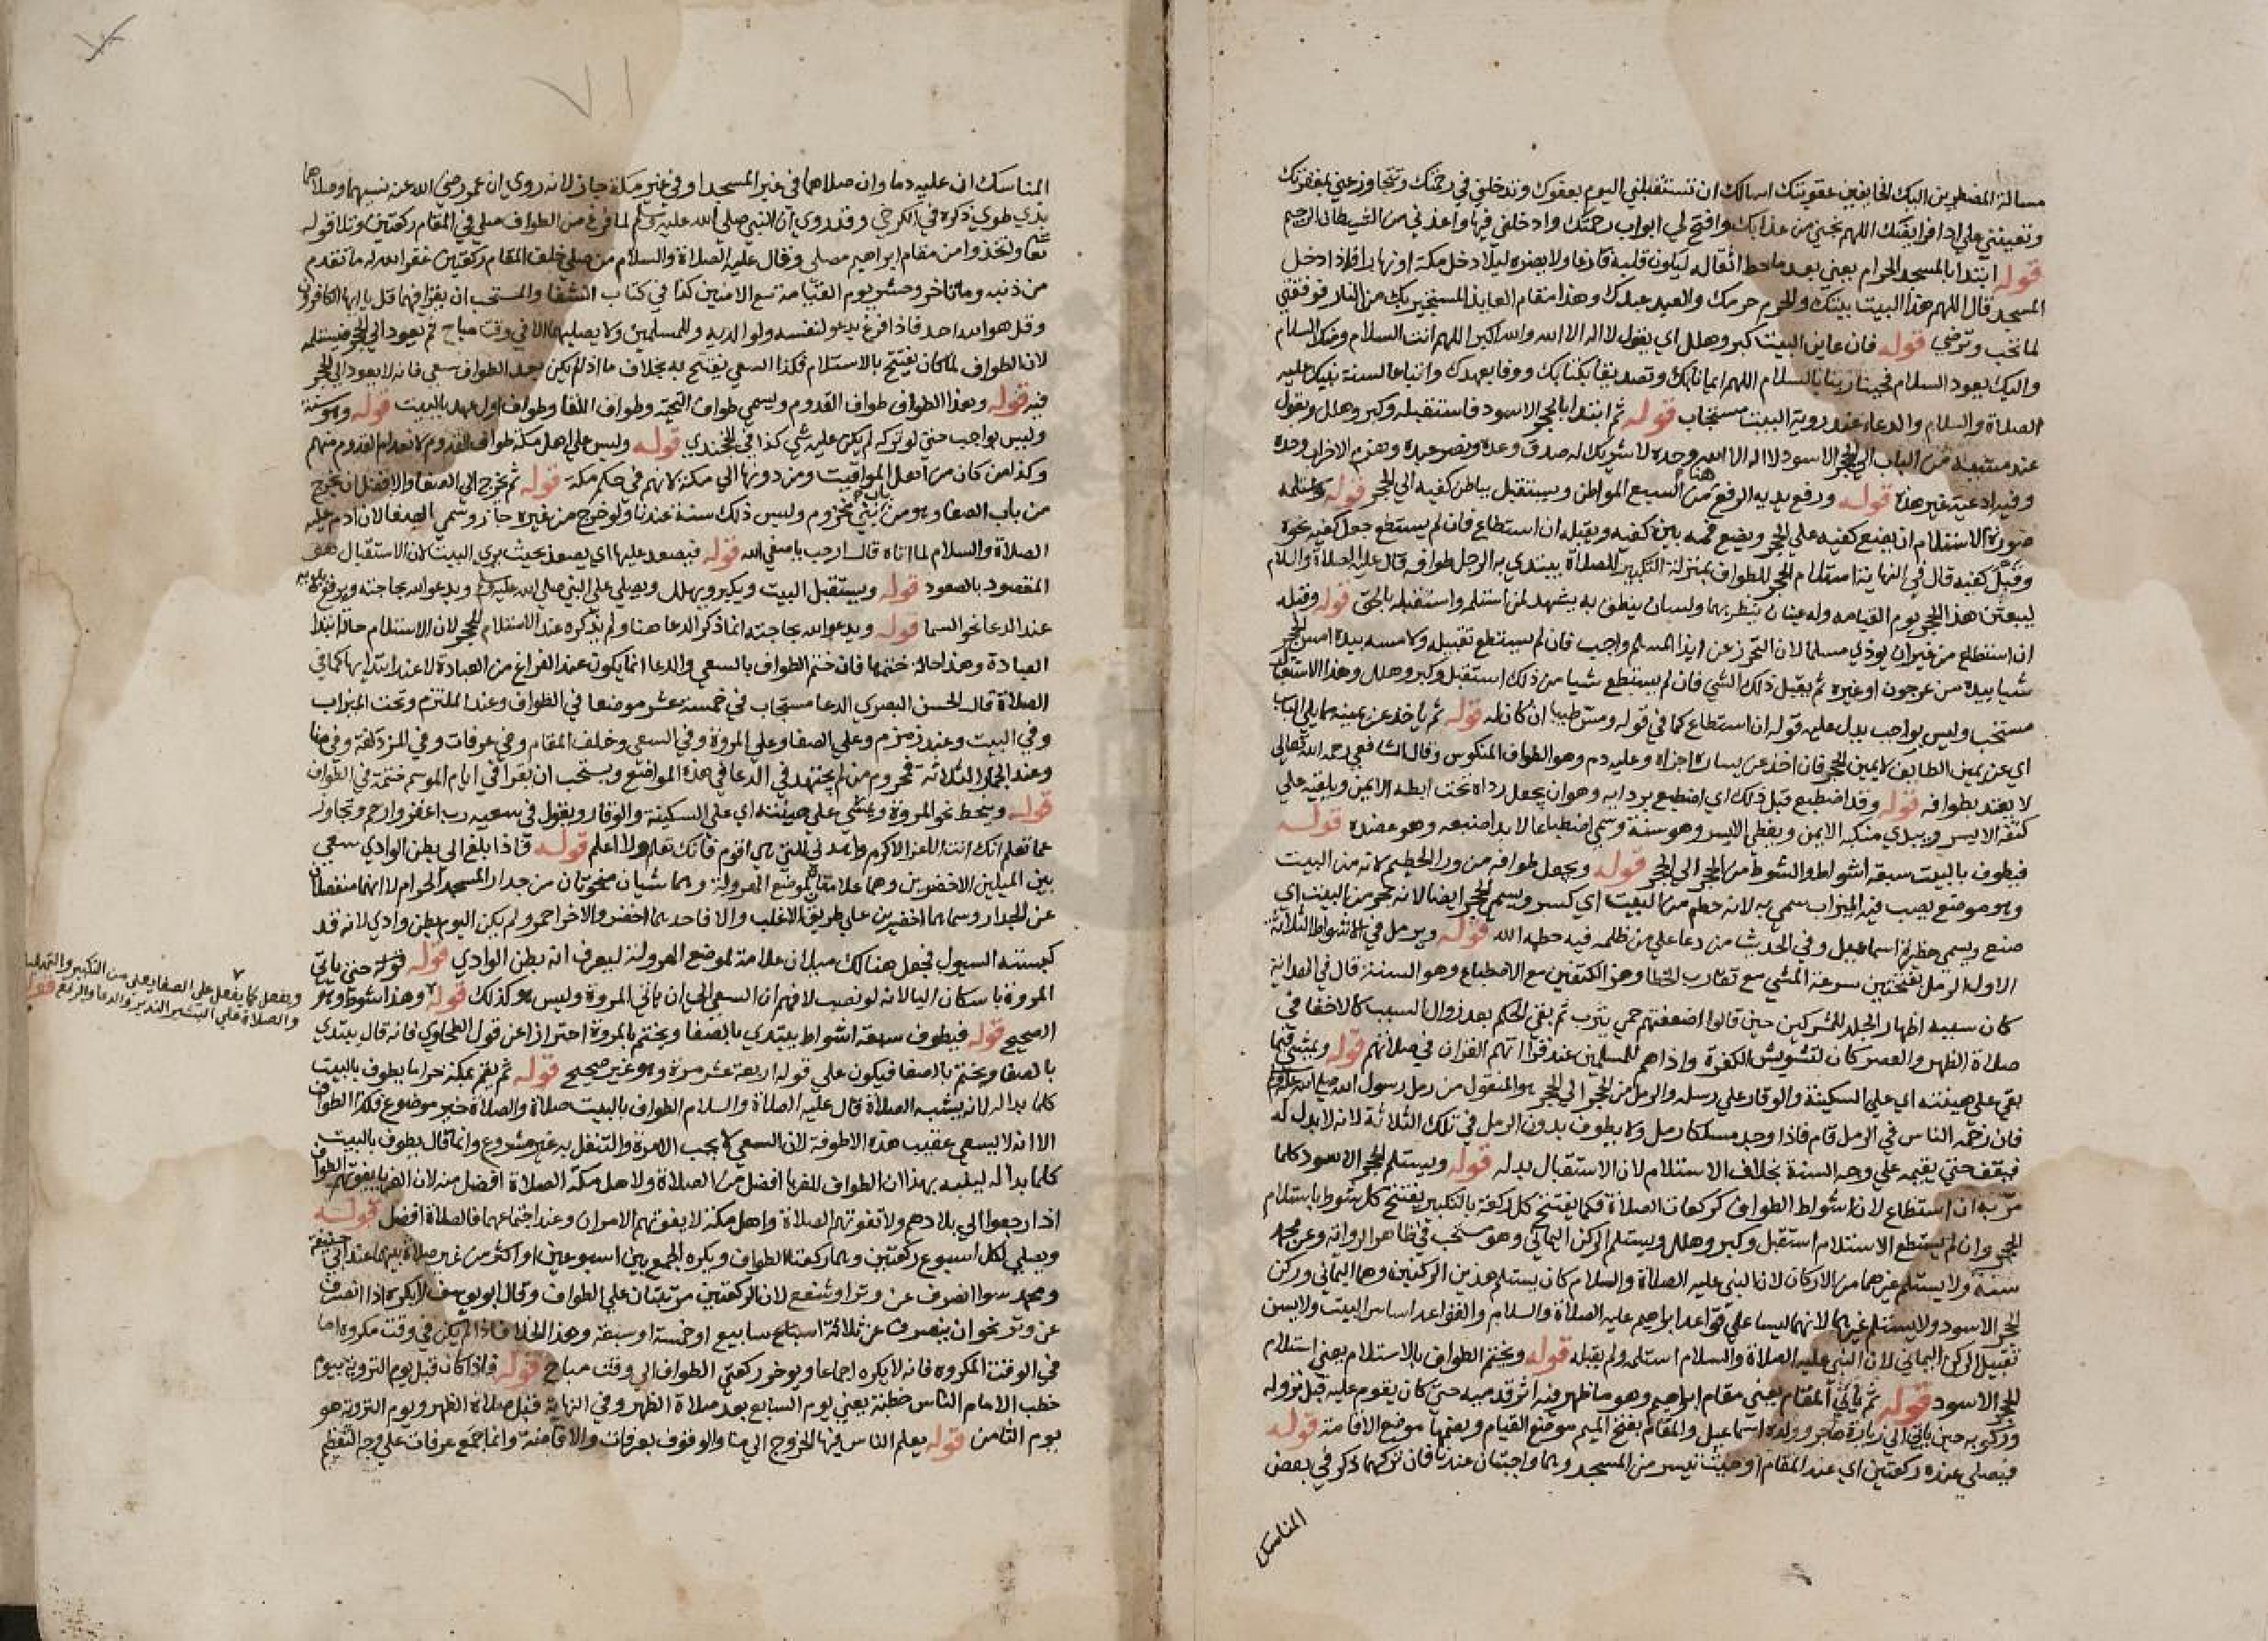 مسالة المضطرين اليك الخايفين عقوبتك اسالك ان تستقبلني اليوم بعفوك وتدخلني في رحمتك وتتجاوز عني بمغفرتك
وتعينني علي ادا فرايضك اللهم نجني من عذابك وافتح لي ابواب رحمتك وادخلني فيها واعذني من الشيطان الرجيم
قوله ابتدا بالمسجد الحرام يعني بعد ما حط اثقاله ليكون قلبه فارغا ولا يضره ليلا دخل مكة او نهارا فاذا دخل
المسجد قال اللهم هذا البيت بيتك والحرم حرمك والعبد عبدك وهذا مقام العايذ المستجير بك من النار فوفقني
لما تحب وترضي قوله فان عاين البيت كبر وهلل اي يقول لا اله الا الله والله اكبر اللهم انت السلام ومنك السلام
واليك يعود السلام فحينا ربنا بالسلام اللهم ايمانا بك وتصديقا بكتابك ووفا بعهدك واتباعا لسنة نبيك عليه
الصلاة والسلام والدعاء عند روية البيت مستجاب قوله ثم ابتدا بالحجر الاسود فاستقبله وكبر وهلل ويقول
عند مشيه من الباب الي الحجر الاسود لا اله الا الله وحده لا شريك له صدق وعده ونصر عبده وهزم الاحزاب وحده
وفيه ادعية غير هذه قوله ورفع يديه الرفع هنا من السبع المواطن ويستقبل بباطن كفيه الي الحجر قوله واستلمه
صورة الاستلام ان يضع كفيه علي الحجر ويضع فمه بين كفيه ويقبله ان استطاع فان لم يستطع جعل كفيه نحوه
وقبل كفيه قال في النهاية استلام الحجر للطواف بمنزلة التكبير للصلاة يبتدي به الرجل طوافه قال عليه الصلاة والسلام
ليبعثن هذا الحجر يوم القيامه وله عينان ينظر بهما ولسان ينطق به يشهد لمن استلمه واستقبله بالحق قوله وقبله
ان استطاع من غير ان يوذي مسلما لان التحرز عن ايذا المسلم واجب فان لم يستطع تقبيله ولا مسه بيده امس الحجر
شيا بيده من عرجون او غيره ثم يقبل ذلك الشي فان لم يستطع شيا من ذلك استقبل وكبر وهلل وهذا الاستقبال
مستحب وليس بواجب بدل عليه قوله ان استطاع كما في قوله ومس طيبا ان كان له قوله ثم ياخذ عن يمينه مما يلي الباب
اي عن يمين الطايف لا يمين الحجر فان اخذ عن يساره اجزاه وعليه دم وهو الطواف المنكوس وقال الشافعي رحمه الله تعالي
لا يعتد بطوافه قوله وقد اضطبع قبل ذلك اي اضطبع بردايه وهو ان يجعل رداه تحت ابطه الايمن ويلقيه علي
كتفه الايسر ويبدي منكبه الايمن ويغطي الايسر وهو سنة وسمي اضطباعا لابدا ضبعه وهو عضده قوله
فيطوف بالبيت سبعة اشواط والشوط من الحجر الي الحجر قوله ويجعل طوافه من ورا الحطيم لانه من البيت
وهو موضع يصب فيه الميزاب سمي به لانه حطم من البيت اي كسر ويسمي الحجر ايضا لانه حجر من البيت اي
منع ويسمي حظيرة اسماعيل وفي الحديث من دعا علي من ظلمه فيه حطمه الله قوله ويرمل في الاشواط الثلاثة
الاول الرمل بفتحتين سرعة المشي مع تقارب الخطا وهز الكتفين مع الاضطباع وهو السنة قال في الهداية
كان سببه اظهار الجلد للمشركين حين قالوا اضعفتهم حمي يثرب ثم بقي الحكم بعد زوال السبب كالاخفا في
صلاة الظهر والعصر كان لتشويش الكفرة واذاهم للمسلمين عند قراتهم القران في صلاتهم قوله ويمشي فيما
بقي علي هينته اي علي السكينة والوقار علي رسله والرمل من الحجر الي الحجر هو المنقول من رمل رسول الله صلي الله عليه وسلم
فان زحمه الناس في الرمل قام فاذا وجد مسلكا رمل ولا يطوف بدون الرمل في تلك الثلاثة لانه لا بدل له
فيقف حتي يقيمه علي وجه السنة بخلاف الاستلام لان الاستقبال بدله قوله ويستلم الحجر الاسود كلما
مر به ان استطاع لان اشواط الطواف كركعات الصلاة فكما يفتتح كل ركعة بالتكبير يفتتح كل شوط باستلام
الحجر وان لم يستطع الاستلام استقبل وكبر وهلل ويستلم الركن اليماني وهو مستحب في ظاهر الرواية وعن محمد
سنة ولا يستلم غيرهما من الاركان لان النبي عليه الصلاة والسلام كان يستلم هذين الركنين وهما اليماني وركن
الحجر الاسود ولا يستلم غيرهما لانهما ليسا علي قواعد ابراهيم عليه الصلاة والسلام والقواعد اساس البيت ولا يسن
تقبيل الركن اليماني لان النبي عليه الصلاة والسلام استلمه ولم يقبله قوله ويختم الطواف بالاستلام يعني استلام
الحجر الاسود قوله ثم ياتي المقام يعني مقام ابراهيم وهو ما ظهر فيه اثر قدميه حين كان يقوم عليه قبل نزوله
وركوبه حين ياتي الي زيارة هاجر وولده اسماعيل والمقام بفتح الميم موضع القيام وبضمها موضع الاقامة قوله
فيصلي عنده ركعتين اي عند المقام او حيث تيسر من المسجد وهما واجبتان عندنا فان تركهما ذكر في بعض
المناسك
٧١
المناسك ان عليه دما وان صلاهما في غير المسجد او في غير مكة جاز لانه روي ان عمر رضي الله عنه نسيهما وصلاهما
بذي طوي ذكره في الكرخي وقد روي ان النبي صلي الله عليه وسلم لما فرغ من الطواف صلي في المقام ركعتين وتلا قوله
تعا واتخذوا من مقام ابراهيم مصلي وقال عليه الصلاة والسلام من صلي خلف المقام ركعتين غفر الله له ما تقدم
من ذنبه وما تاخر وحشر يوم القيامة مع الامنين كذا في كتاب الشفا والمستحب ان يقرا فيهما قل يا ايها الكافرون
وقل هو الله احد فاذا فرغ يدعو لنفسه ولوالديه وللمسلمين ولا يصليهما الا في وقت مباح ثم يعود الي الحجر فيستلمه
لان الطواف لما كان يفتتح بالاستلام فكذا السعي يفتتح به بخلاف ما اذا لم يكن بعد الطواف سعي فانه لا يعود الي الحجر
فيه قوله وهذا الطواف طواف القدوم ويسمي طواف التحية وطواف اللقا وطواف اول عهد بالبيت قوله وهو سنة
وليس بواجب حتي لو تركه لم يكن عليه شي كذا في الخجندي قوله وليس علي اهل مكة طواف القدوم لانعدام القدوم منهم
وكذا من كان من اهل المواقيت ومن دونها الي مكة لانهم في حكم مكة قوله ثم يخرج الي الصفا والافضل ان يخرج
من باب الصفا وهو من باب بني مخزوم وليس ذلك سنة عندنا ولو خرج من غيره جاز وسمي الصفا لان ادم عليه
الصلاة والسلام لما اتاه قال ارحب يا صفي الله قوله فيصعد عليها اي يصعد بحيث يري البيت لان الاستقبال هو
المقصود بالصعود قوله ويستقبل البيت ويكبر ويهلل ويصلي علي النبي صلي الله عليه وسلم ويدعو الله بحاجته ويرفع يديه
عند الدعا نحو السما قوله ويدعو الله بحاجته انما ذكر الدعا هنا ولم يذكره عند الاستلام للحجر لان الاستلام حالة ابتدا
العبادة وهذا حالة ختمها فان ختم الطواف بالسعي والدعا انما يكون عند الفراغ من العبادة لا عند ابتدايها كما في
الصلاة قال الحسن البصري الدعا مستجاب في خمسة عشر موضعا في الطواف وعند الملتزم وتحت الميزاب
وفي البيت وعند زمزم وعلي الصفا وعلي المروة وفي السعي وخلف المقام وفي عرفات وفي المزدلفة وفي منا
وعند الجمار الثلاثة فمحروم من لم يجتهد في الدعا في هذه المواضع ويستحب ان يقرا في ايام الموسم ختمة في الطواف
قوله وينحط نحو المروة ويمشي علي هينته اي علي السكينة والوقار ويقول في سعيه رب اغفر وارحم وتجاوز
عما تعلم انك انت الاعز الاكرم واهدني للتي هي اقوم فانك تعلم ولا اعلم قوله فاذا بلغ الي بطن الوادي سعي
بين الميلين الاخضرين وهما علامتان لموضع الهرولة وهما شيان منحوتان من جدار المسجد الحرام لا انهما منفصلان
عن الجدار وسماهما اخضرين علي طريق الاغلب والا فاحدهما اخضر والاخر احمر ولم يكن اليوم بطن وادي لانه قد
كبسته السيول فجعل هنالك ميلان علامة لموضع الهرولة ليعرف انه بطن الوادي قوله حتي ياتي
المروة باسكان اليا لانه لو نصب لا فهم ان السعي الي ان ياتي المروة وليس هو كذلك قوله وهذا شوط وهو
الصحيح قوله فيطوف سبعة اشواط يبتدي بالصفا ويختم بالمروة احترازا عن قول الطحاوي فانه قال يبتدي
بالصفا ويختم بالصفا فيكون علي قوله اربعة عشر مرة وهو غير صحيح قوله ثم يقيم بمكة حراما يطوف بالبيت
كلما بدا له لانه يشبه الصلاة قال عليه الصلاة والسلام الطواف بالبيت صلاة والصلاة خير موضوع فكذا الطواف
الا انه لا يسعي عقيب هذه الاطوفة لان السعي لا يجب الا مرة والتنفل به غير مشروع وانما قال يطوف بالبيت
كلما بدا له لينبه بهذا ان الطواف للغربا افضل من الصلاة ولاهل مكة الصلاة افضل منه لان الغربا يفوتهم الطواف
اذا رجعوا الي بلادهم ولا تفوتهم الصلاة واهل مكة لا يفوتهم الامران وعند اجتماعهما فالصلاة افضل قوله
ويصلي لكل اسبوع ركعتين وهما ركعتا الطواف ويكره الجمع بين اسبوعين او اكثر من غير صلاة بينهما عند ابي حنيفة
ومحمد سوا انصرف عن وتر او شفع لان الركعتين مرتبتان علي الطواف وقال ابو يوسف لا يكره اذا انصرف
عن وتر نحو ان ينصرف عن ثلاثة اسابيع او خمسة او سبعة وهذا الخلاف اذا لم يكن في وقت مكروه اما
في الوقت المكروه فانه لا يكره اجماعا ويوخر ركعتي الطواف الي وقت مباح قوله فاذا كان قبل يوم التروية بيوم
خطب الامام الناس خطبة يعني يوم السابع بعد صلاة الظهر وفي النهاية قبل صلاة الظهر ويوم التروية هو
يوم الثامن قوله يعلم الناس فيها الخروج الي منا والوقوف بعرفات والافاضة وانما جمع عرفات علي وجه التعظيم
ويفعل كما يفعل علي الصفا يعني من التكبير والتهليل
والصلاة علي البشير النذير والدعا والرفع قوله